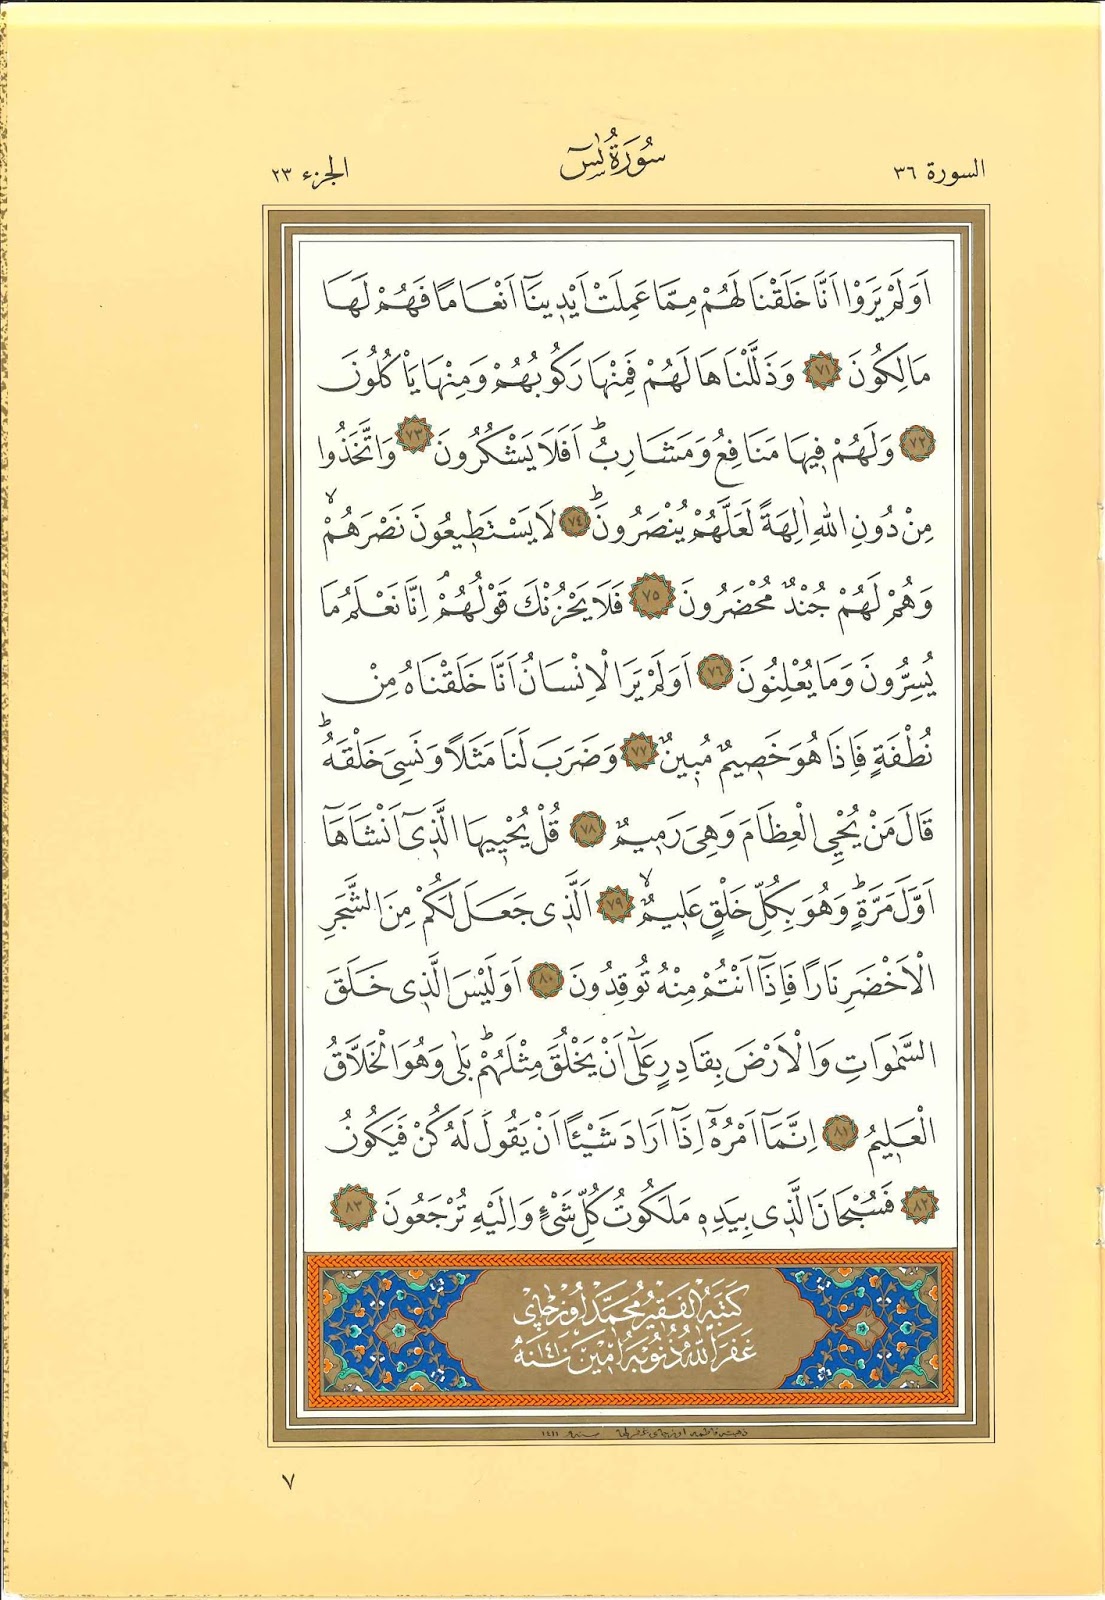 السورة ٣٦
سُورَةُ يٰسٓ
الجزء ٢٣
اَوَلَمْ يَرَوْا اَنَّا خَلَقْنَا لَهُمْ مِمَّا عَمِلَتْ اَيْدٖينَٓا اَنْعَامًا فَهُمْ لَهَا
مَالِكُونَ ٧١ وَذَلَّلْنَاهَا لَهُمْ فَمِنْهَا رَكُوبُهُمْ وَمِنْهَا يَاْكُلُونَ
٧٢ وَلَهُمْ فٖيهَا مَنَافِعُ وَمَشَارِبُؕ اَفَلَا يَشْكُرُونَ ٧٣ وَاتَّخَذُوا
مِنْ دُونِ اللّٰهِ اٰلِهَةً لَعَلَّهُمْ يُنْصَرُونَؕ ٧٤ لَا يَسْتَطٖيعُونَ نَصْرَهُمْۙ
وَهُمْ لَهُمْ جُنْدٌ مُحْضَرُونَ ٧٥ فَلَا يَحْزُنْكَ قَوْلُهُمْۘ اِنَّا نَعْلَمُ مَا
يُسِرُّونَ وَمَا يُعْلِنُونَ ٧٦ اَوَلَمْ يَرَ الْاِنْسَانُ اَنَّا خَلَقْنَاهُ مِنْ
نُطْفَةٍ فَاِذَا هُوَ خَصٖيمٌ مُبٖينٌ ٧٧ وَضَرَبَ لَنَا مَثَلًا وَنَسِىَ خَلْقَهُؕ
قَالَ مَنْ يُحْيِى الْعِظَامَ وَهِىَ رَمٖيمٌ ٧٨ قُلْ يُحْيٖيهَا الَّذٖٓى اَنْشَاَهَٓا
اَوَّلَ مَرَّةٍؕ وَهُوَ بِكُلِّ خَلْقٍ عَلٖيمٌۙ ٧٩ اَلَّذٖى جَعَلَ لَكُمْ مِنَ الشَّجَرِ
الْاَخْضَرِ نَارًا فَاِذَٓا اَنْتُمْ مِنْهُ تُوقِدُونَ ٨٠ اَوَلَيْسَ الَّذٖى خَلَقَ
السَّمٰوَاتِ وَالْاَرْضَ بِقَادِرٍ عَلٰٓى اَنْ يَخْلُقَ مِثْلَهُمْؕ بَلٰى وَهُوَ الْخَلَّاقُ
الْعَلٖيمُ ٨١ اِنَّمَٓا اَمْرُهُٓ اِذَٓا اَرَادَ شَيْـًٔا اَنْ يَقُولَ لَهُ كُنْ فَيَكُونُ
٨٢ فَسُبْحَانَ الَّذٖى بِيَدِهٖ مَلَكُوتُ كُلِّ شَىْءٍ وَاِلَيْهِ تُرْجَعُونَ ٨٣
كَتَبَهُ الْفَقِيرُ مُحَمَّد اُوزْچَاى
غَفَرَ اللّٰهُ ذُنُوبَهُ اٰمِينَ سَنَة ١٤١٠
ذهبته فاطمه اوزچاى سنه ١٤١١
٧